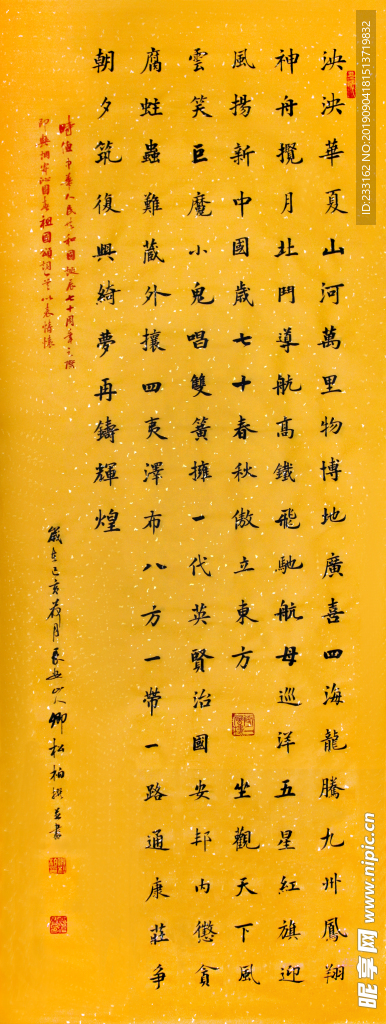 泱泱華夏山河萬里物博地廣喜四海龍騰九州鳳翔
神舟攬月北鬥導航高鐵飛馳航母巡洋五星紅旗迎
風揚新中國歲七十春秋傲立東方 坐觀天下風
雲笑巨魔小鬼唱雙簧擁一代英賢治國安邦內懲貪
腐蛀蟲難藏外攘四夷澤布八方一帶一路通康莊爭
朝夕筑復興綺夢再鑄輝煌
時值中華人民共和國誕辰七十周年之際
即興調寄沁園春祖國頌詞一首以表情懷
歲在己亥荷月長安山人卿松柏撰並書
ID:233162 NO:20190904181513719832
昵享网 www.nipic.cn